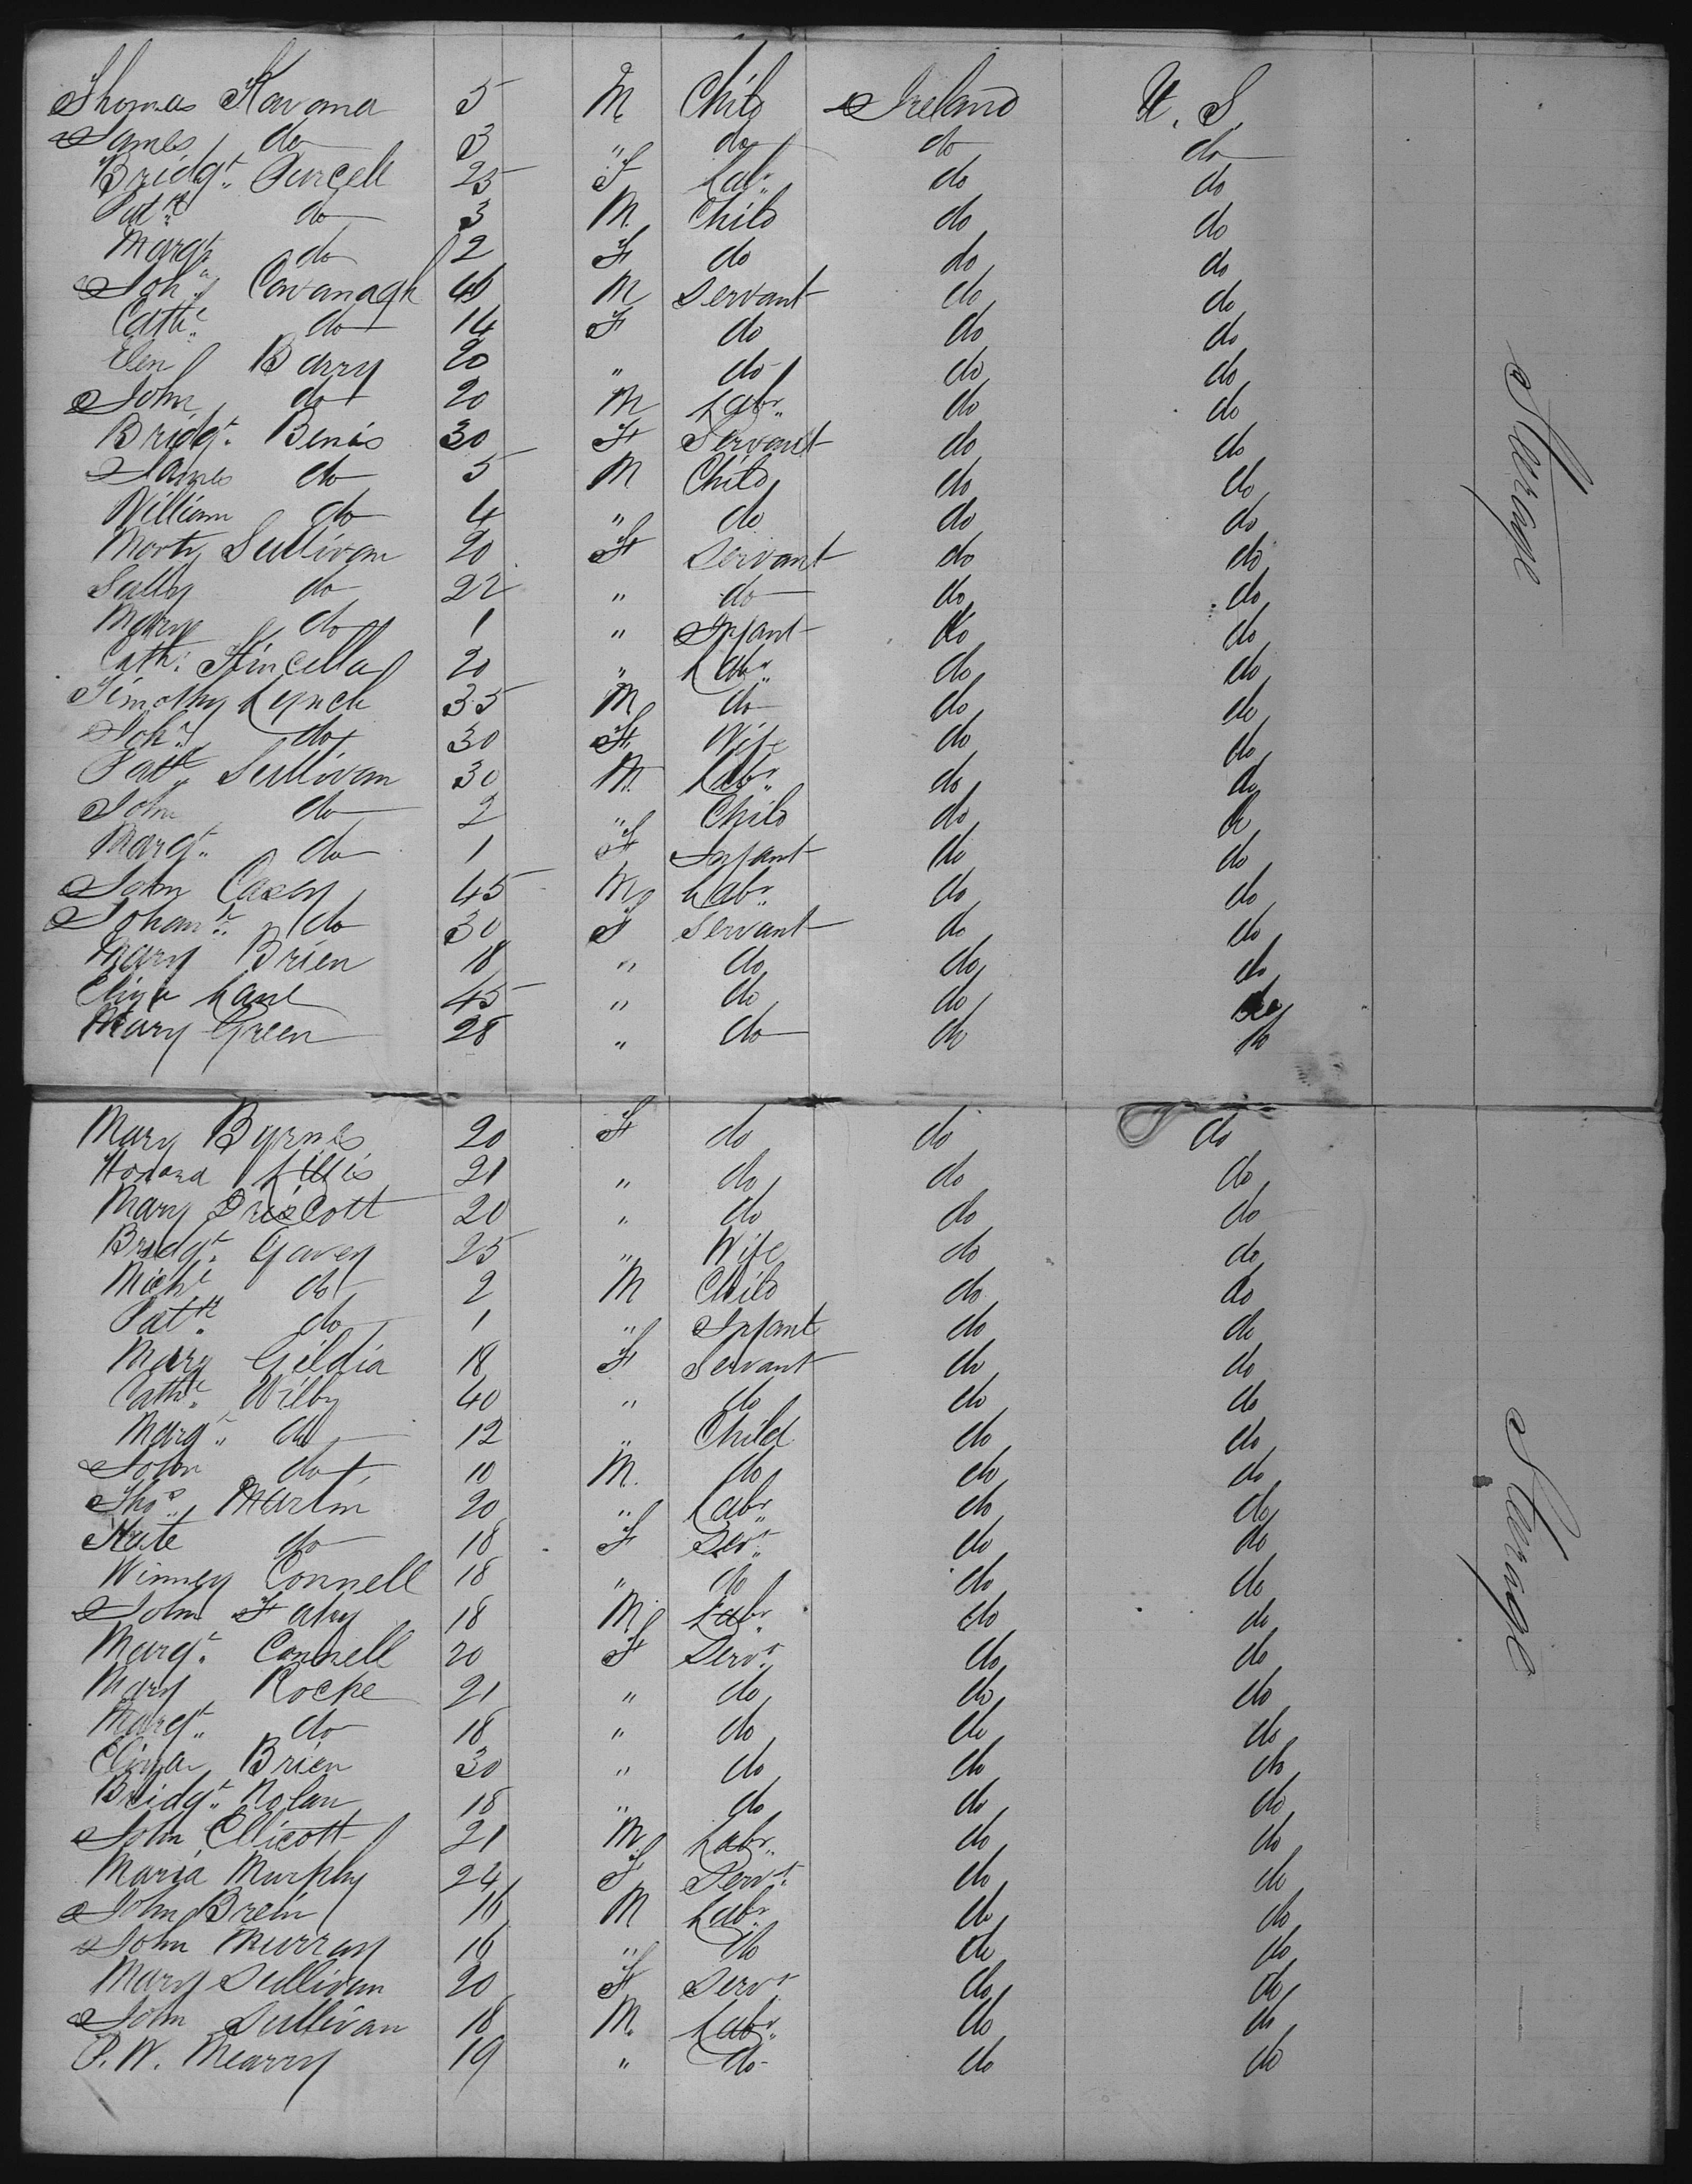 Thomas Kavana 5 M Child Ireland U. S.
James do 3 " do do do
Bridgt. Purcell 25 F Labr. do do
Patk. do 3 M. Child do do
Margt. do 2 F do do do
Joha. Cavanagh M Servant do do
Cathe. do 14 F do do do
Elen Barry 20 " do do do
John do 20 M Labr. do do
Bridgt. Benis 30 F Servant do do
James do 5 M Child do do
William do 4 " do do do
Morty Sullivan 20 F Servant do do
Sally do 22 " do do do
Mary do 1 " Infant do do
Cath. Kincella 20 " Labr. do do
Timothy Lynch 35 M do do do
Joha. do 30 F. Wife do do
Patk. Sullivan 30 M. Labr. do do
John do 2 " Child do do
Margt. do 1 F Infant do do
John Casey 45 M Labr. do do
Johan. do 30 F Servant do do
Mary Brien 18 " do do do
Eliza Lane 45 " do do do
Mary Green 28 " do do do
Steerage
Mary Byrnes 20 F do do do
Honora Lillis 21 " do do do
Mary Driscott 20 " do do do
Bridgt. Gavey 25 " Wife do do
Michl do 2 M Child do do
Patk. do 1 " Infant do do
Mary Gildia 18 F Servant do do
Cathe. Wilby 40 " do do do
Margt. do 12 " Child do do
John do 10 M. do do do
Thos. Martin 20 " Labr. do do
Kate do 18 F Ser't. do do
Winney Connell 18 " do do do
John Fahy 18 M Labr. do do
Margt. Connell 20 F Servt. do do
Mary Roche 21 " do do do
Margt. do 18 " do do do
Eliza Brien 30 " do do do
Bridgt. Nolan 18 " do do do
John Ellicott 21 M Labr. do do
Maria Murphy 24 F Servt. do do
John Brein 16 M Labr. do do
John Murray 16 " do do do
Mary Sullivan 20 F Servt do do
John Sullivan 18 M. Labr. do do
P. W. Mearry 19 " do do do
Sterage